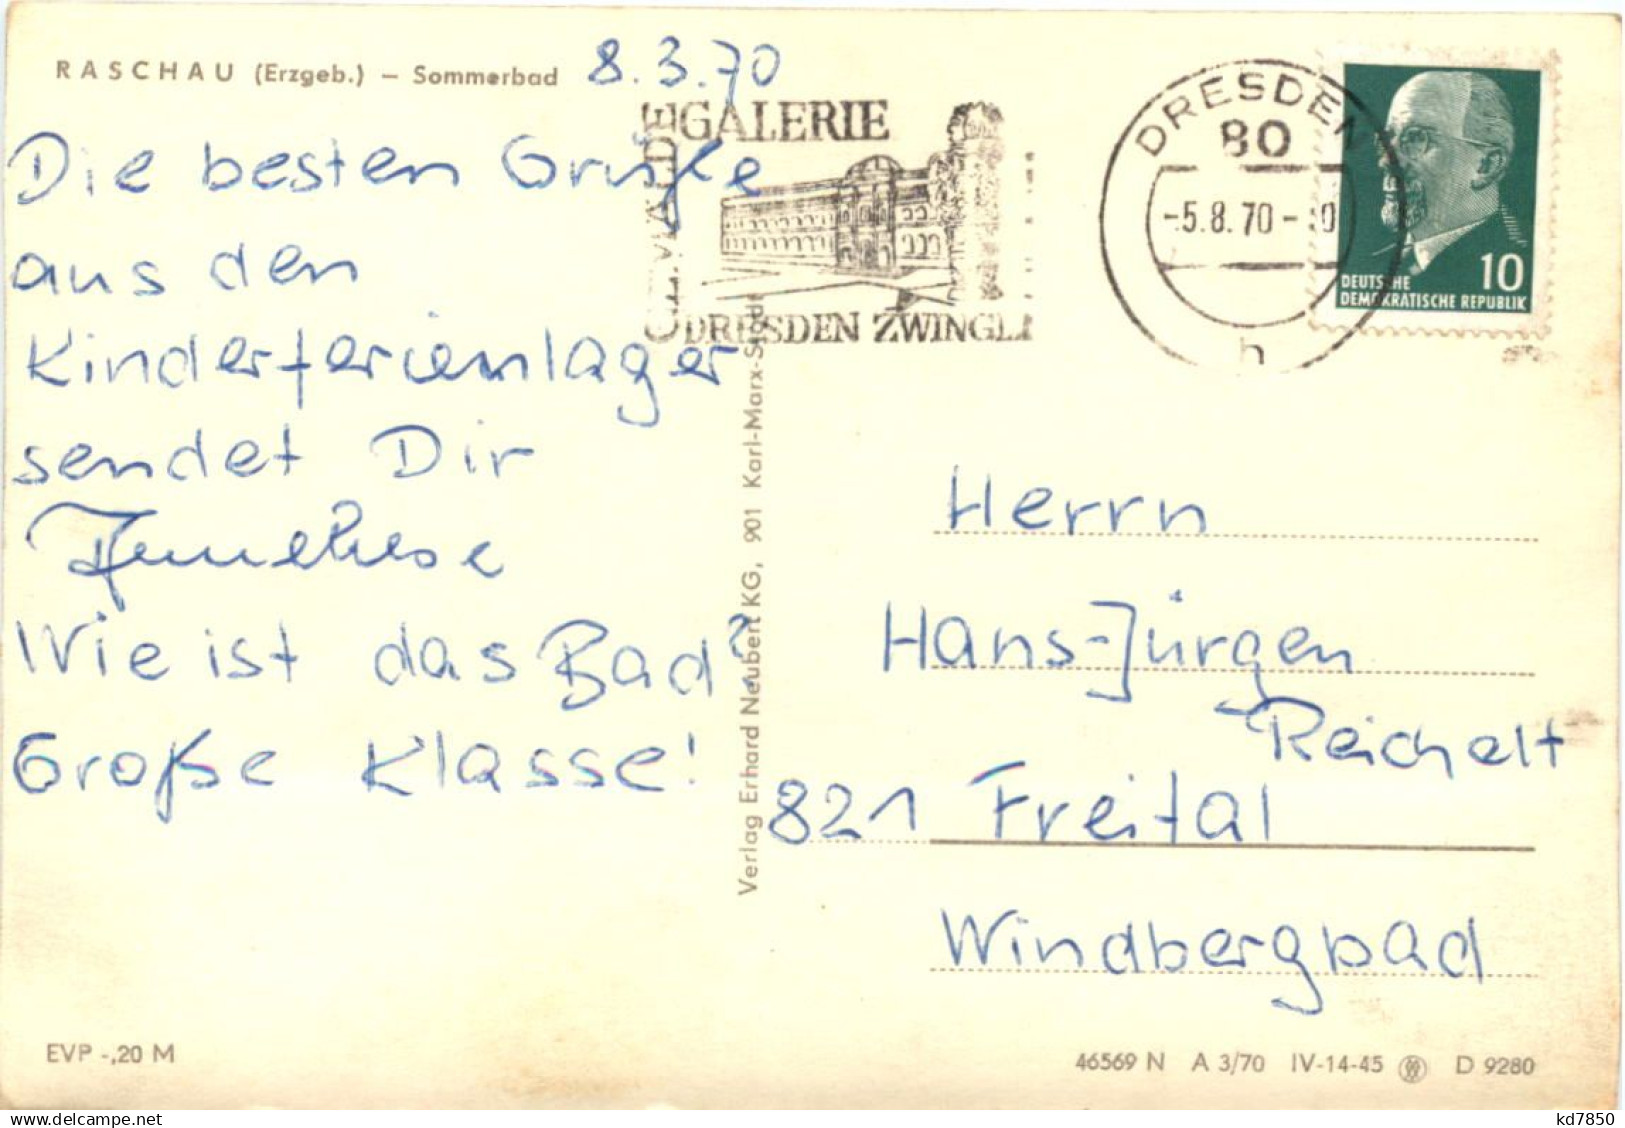 RASCHAU (Erzgeb.) — Sommerbad
8.3.70
Die besten Grüße
aus den
Kinderferienlager
sendet Dir
Anneliese
Wie ist das Bad?
Große Klasse!
EVP -,20 M
GEMÄLDE
GALERIE
DRESDEN ZWINGE
DRESDEN
80
-5.8.70-
h
10
DEUTSCHE
DEMOKRATISCHE REPUBLIK
Verlag Erhard Neubert KG, 901 Karl-Marx-Stadt
Herrn
Hans-Jürgen
Reichelt
821 Freital
Windbergbad
46569 N A 3/70 IV-14-45 D 9280
kd7850